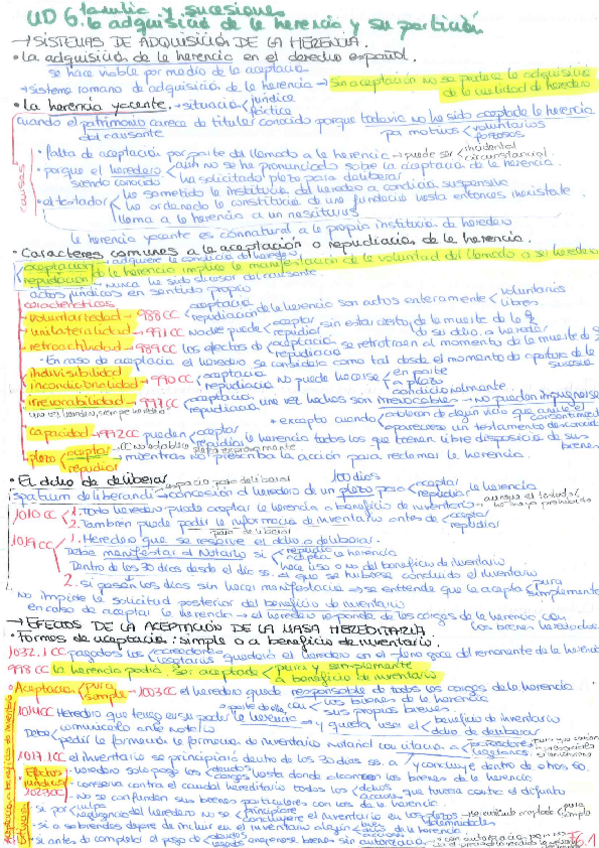 familia y sucesiones
UD 6. la adquisición de la herencia y su partición
→ SISTEMAS DE ADQUISICIÓN DE LA HERENCIA.
• La adquisición de la herencia en el derecho español.
se hace viable por medio de la aceptación
→ sistema romano de adquisición de la herencia → Sin aceptación no se produce la adquisición
de la cualidad de heredero
• La herencia yacente. → situación jurídica
fáctica
cuando el patrimonio carece de titular conocido porque todavía no ha sido aceptada la herencia
del causante por motivos voluntarios
forzosos
causas
• falta de aceptación por parte del llamado a la herencia → puede ser incidental
circunstancial
• porque el heredero aún no se ha pronunciado sobre la aceptación de la herencia
siendo conocido ha solicitado plazo para deliberar
• el testador ha sometido la institución del heredero a condición suspensiva
ha ordenado la constitución de una fundación hasta entonces inexistente
llama a la herencia a un nasciturus
la herencia yacente es connatural a la propia institución de heredero
• Caracteres comunes a la aceptación o repudiación de la herencia.
aceptación → adquiere la condición de heredero
repudiación de la herencia implica la manifestación de la voluntad del llamado a ser heredero
→ nunca ha sido sucesor del causante
actos jurídicos en sentido propio
características
voluntariedad → 988 CC aceptación
repudiación de la herencia son actos enteramente voluntarios
libres
unilateralidad → 991 CC nadie puede aceptar
repudiar sin estar cierto de la muerte de la
de su dcho. a heredar
retroactividad → 989 CC los efectos de aceptación
repudiación se retrotraen al momento de la muerte de
• En caso de aceptación el heredero se considera como tal desde el momento de apertura de la
sucesión
indivisibilidad
incondicionalidad → 990 CC aceptación
repudiación no puede hacerse en parte
a plazo
condicionalmente
irrevocabilidad → 997 CC aceptación
repudiación una vez hechas son irrevocables → no pueden impugnarse
una vez heredero, siempre heredero
• excepto cuando adolecieran de algún vicio que anule el consentimiento
apareciese un testamento desconocido
capacidad → 992 CC pueden aceptar
repudiar la herencia todos los que tienen libre disposición de sus
bienes
plazo aceptar
repudiar → CC no establece plazo expresamente
mientras no prescriba la acción para reclamar la herencia
• El dcho de deliberar espacio para deliberar
spatium deliberandi → concesión al heredero de un plazo para aceptar
repudiar la herencia
100 días
1010 CC 1. Todo heredero puede aceptar la herencia a beneficio de inventario → aunque el testador
lo haya prohibido
2. También puede pedir la formación de inventario antes de aceptar
repudiar
para deliberar
1019 CC 1. Heredero que se reserve el dcho. a deliberar.
Debe manifestar al Notario si repudia
acepta la herencia
hace uso o no del beneficio de inventario
Dentro de los 30 días desde el día ss. al que se hubiese concluido el inventario
2. si pasan los días sin hacer manifestación → se entiende que la acepta pura
simplemente
No impide la solicitud posterior del beneficio de inventario
en caso de aceptar la herencia → el heredero responde de las cargas de la herencia con
los bienes heredados
→ EFECTOS DE LA ACEPTACIÓN DE LA MASA HEREDITARIA.
• Formas de aceptación: simple o a beneficio de inventario.
1032.1 CC pagados los acreedores
legatarios quedará el heredero en el pleno goce del remanente de la herencia
998 CC la herencia podrá ser aceptada pura y simplemente
a beneficio de inventario
• Aceptación pura
simple → 1003 CC el heredero queda responsable de todas las cargas de la herencia
con los bienes de la herencia
sus propios bienes
1014 CC Heredero que tenga en su poder la herencia → y quiera usar el beneficio de inventario
o parte de ella
dcho de deliberar
Debe comunicarlo ante notario
pedir la formación de inventario notarial con citación a acreedores
legatarios
1017.1 CC el inventario se principiará dentro de los 30 días ss. y concluye dentro de otros 60
Aceptación a beneficio de inventario
• Efectos
jurídicos
1023 CC
• heredero solo paga las deudas
cargas hasta donde alcancen los bienes de la herencia
• conserva contra el caudal hereditario todos los dchos
acciones que tuviera contra el difunto
• no se confunden sus bienes particulares con los de la herencia.
• si por culpa
negligencia del heredero no se principiare
concluyere el inventario en los plazos → se entiende aceptada pura
simple
• si a sabiendas dejare de incluir en el inventario algún bien
de la herencia
• si antes de completar el pago de deudas
legados enajenase bienes sin autorización
76.1